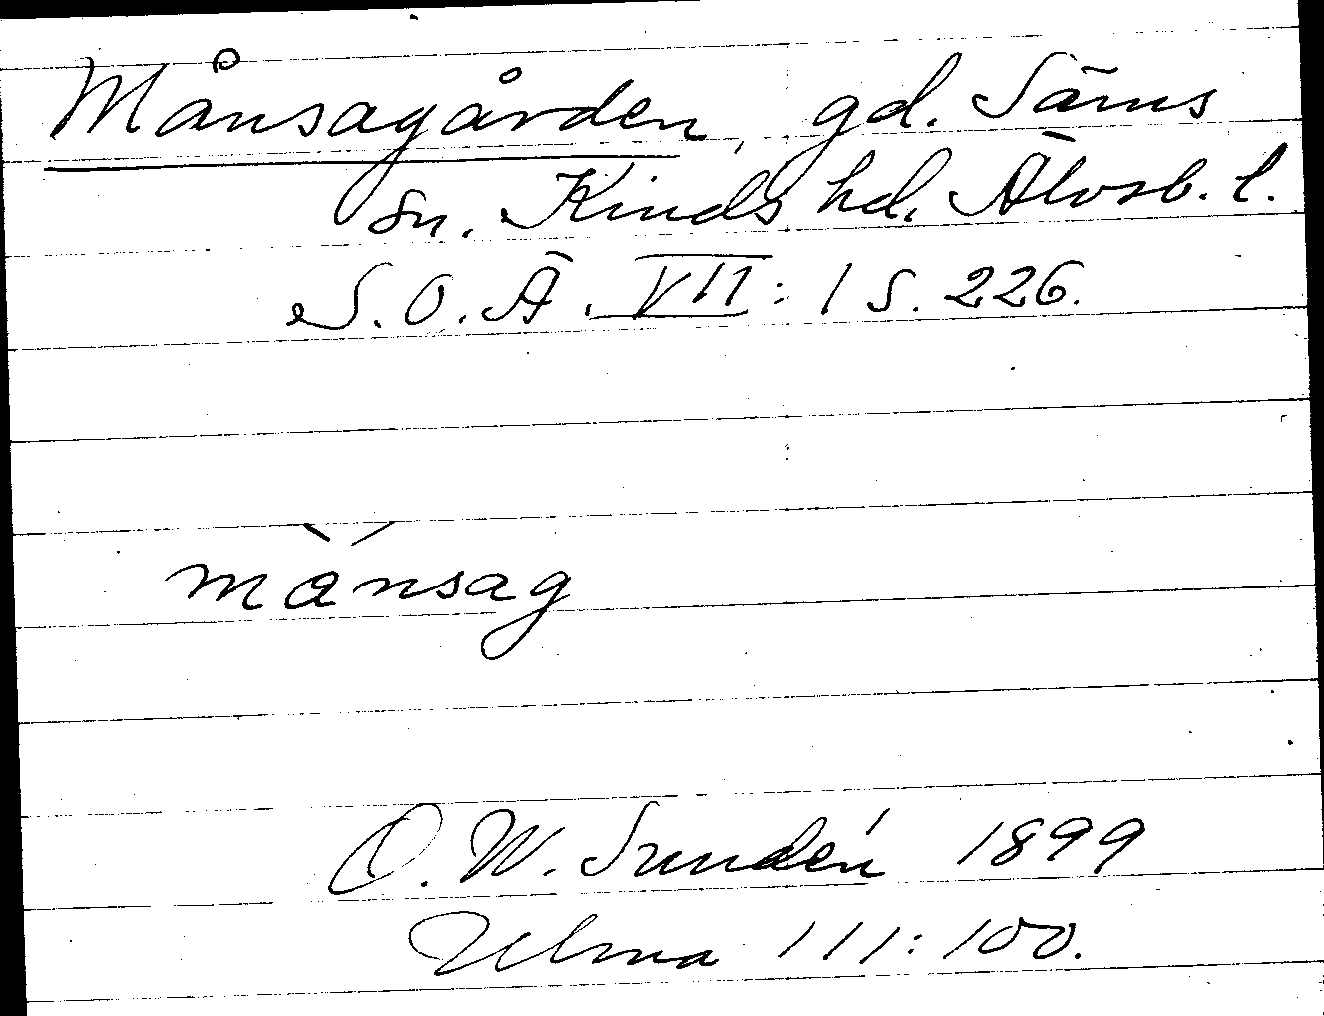 Månsagården, gd. Säms
sn. Kinds hd. Älvsb. l.
S. O. Ä. VII: 1 S. 226.
mànsag
O. W. Sundén 1899
Ulma 111: 100.